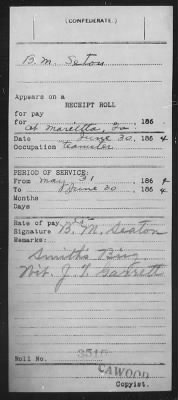 (CONFEDERATE.)
B. M. Seton
Appears on a
RECEIPT ROLL
for pay
for , 186
At Marietta, Ga
Date June 30, 1864
Occupation teamster
PERIOD OF SERVICE:
From May 31 , 1864
To June 30 , 1864
Months
Days
Rate of pay
Signature B. M. Seaton
Remarks:
Smiths Brig
Wit. J. T. Garrett
Roll No. 2515
CAWOOD
Copyist.